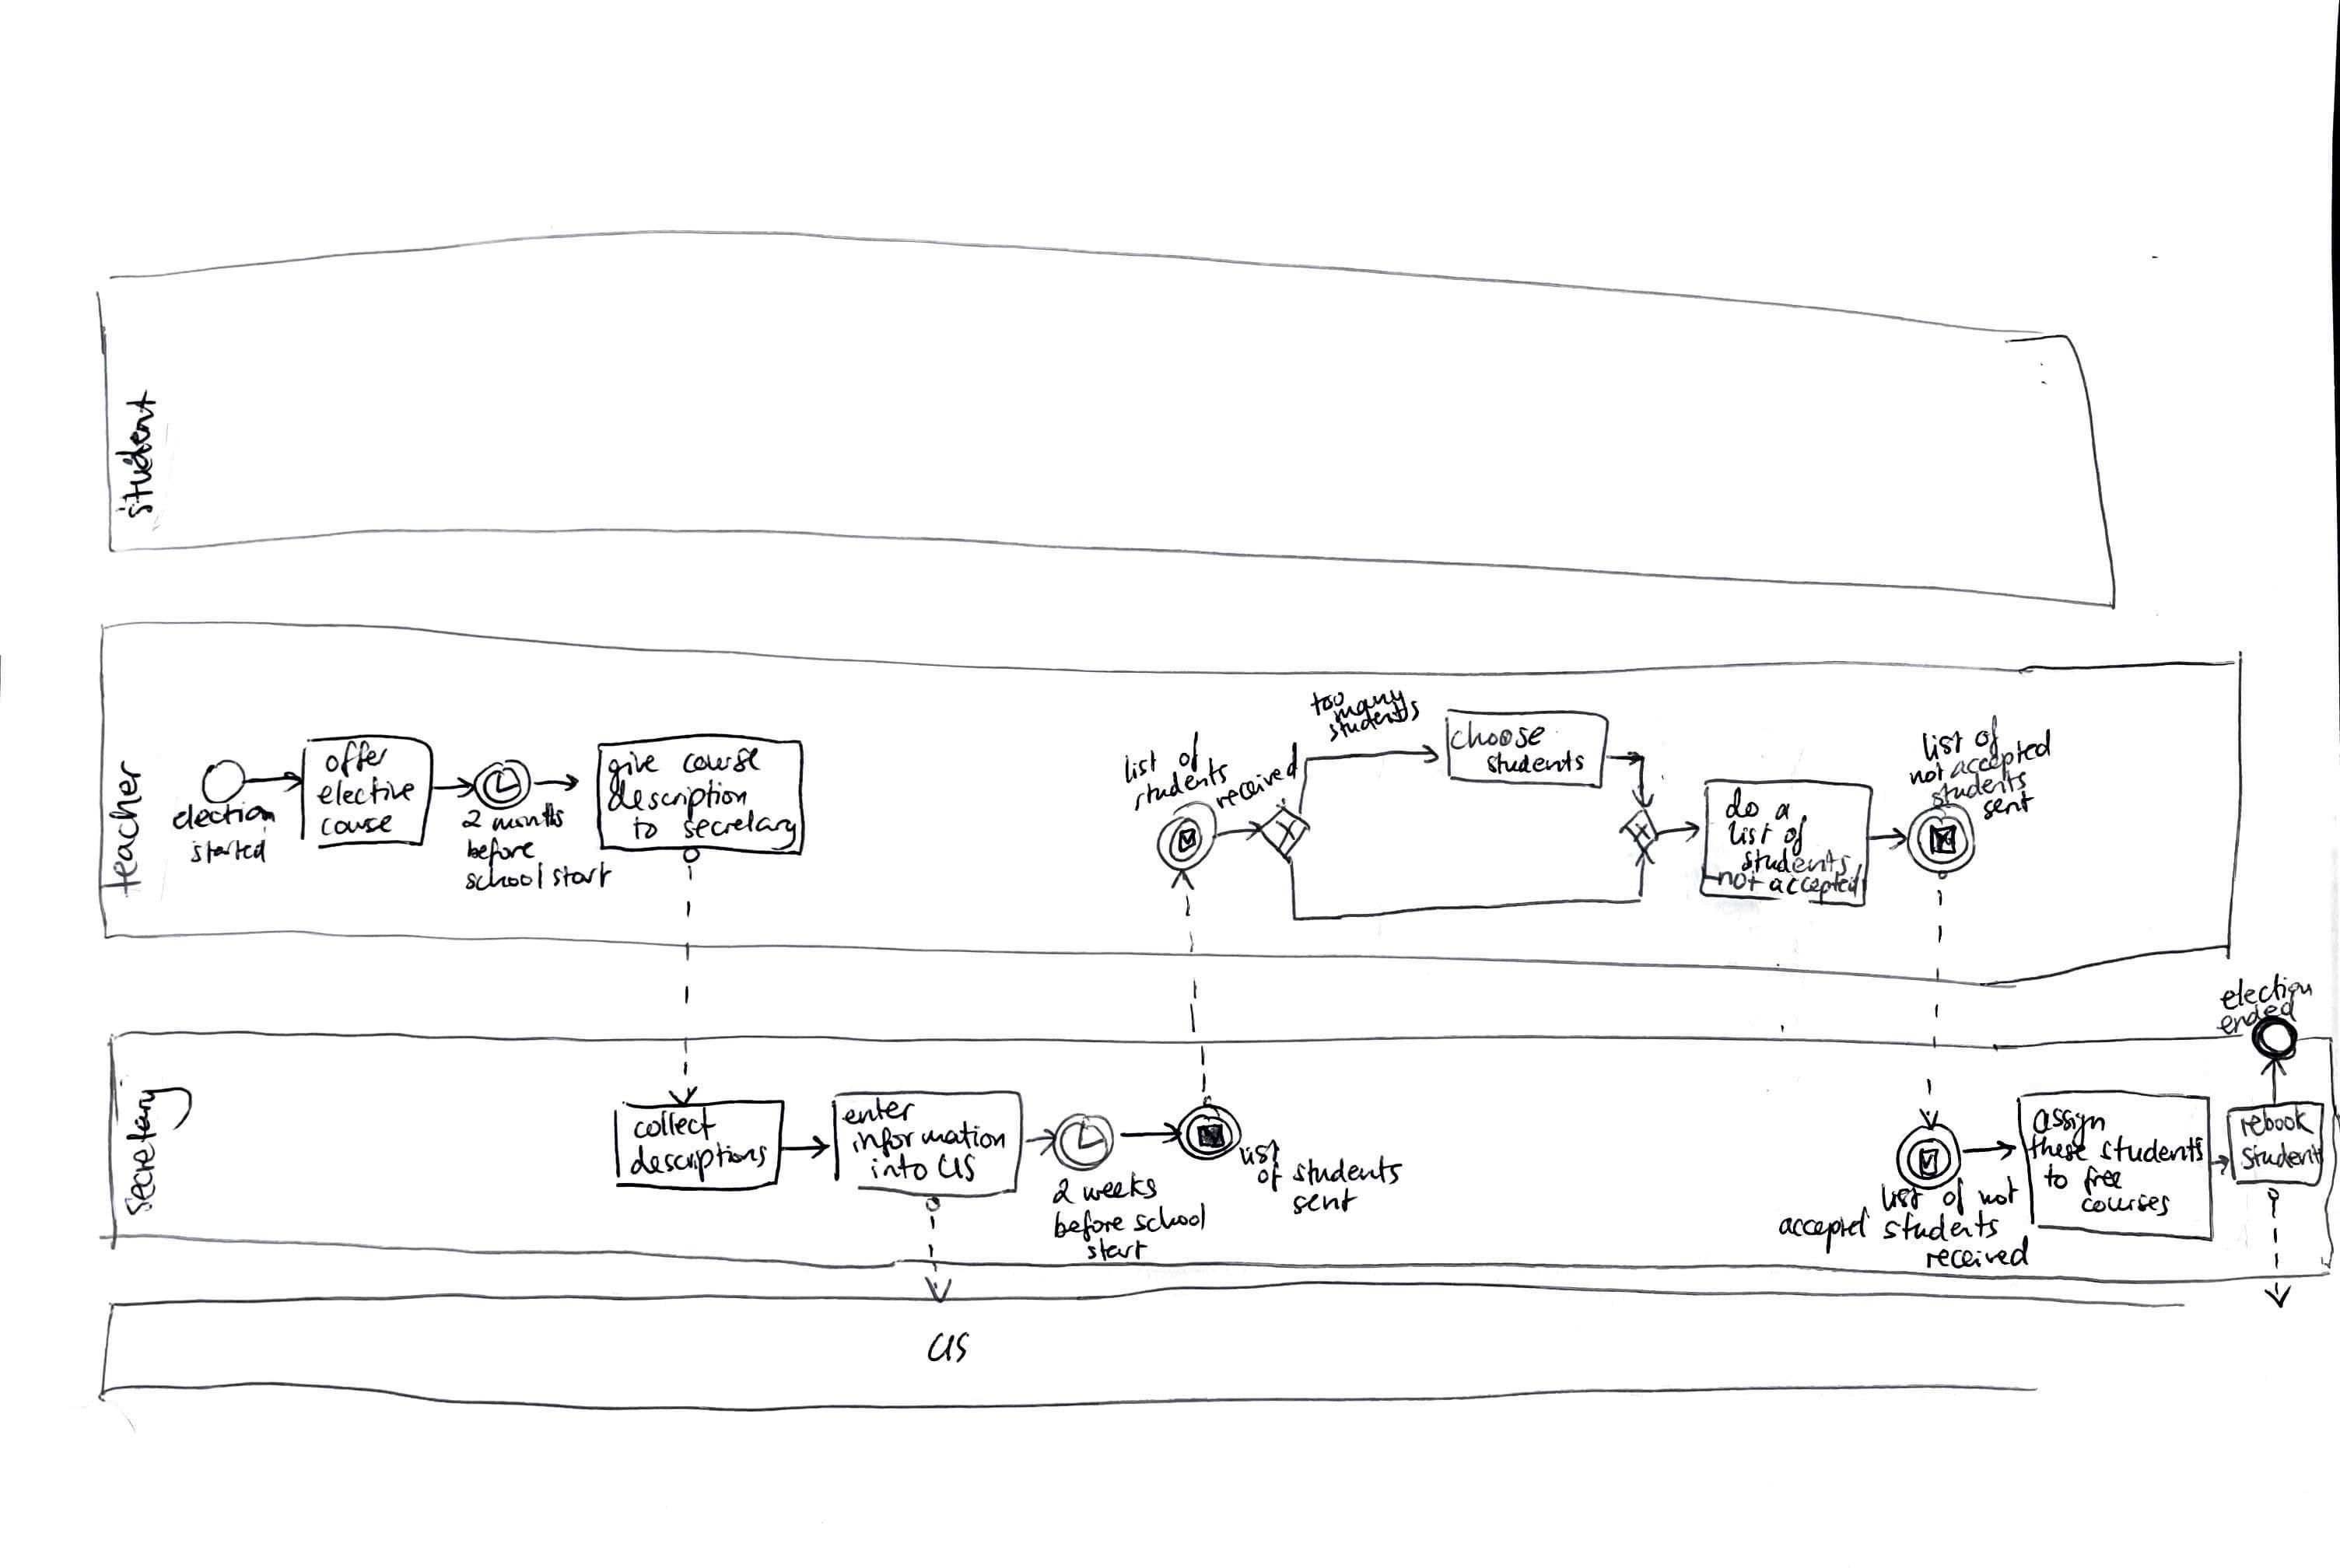 student
teacher
election
started
offer
elective
couse
2 months
before
school start
give course
description
to secretary
list of
students
received
too
many
students
choose
students
do a
list of
students
not accepted
list of
not accepted
students
sent
secretary
collect
descriptions
enter
information
into CIS
2 weeks
before school
start
list
of students
sent
list of not
accepted students
received
assign
these students
to free
courses
rebook
student
election
ended
CIS